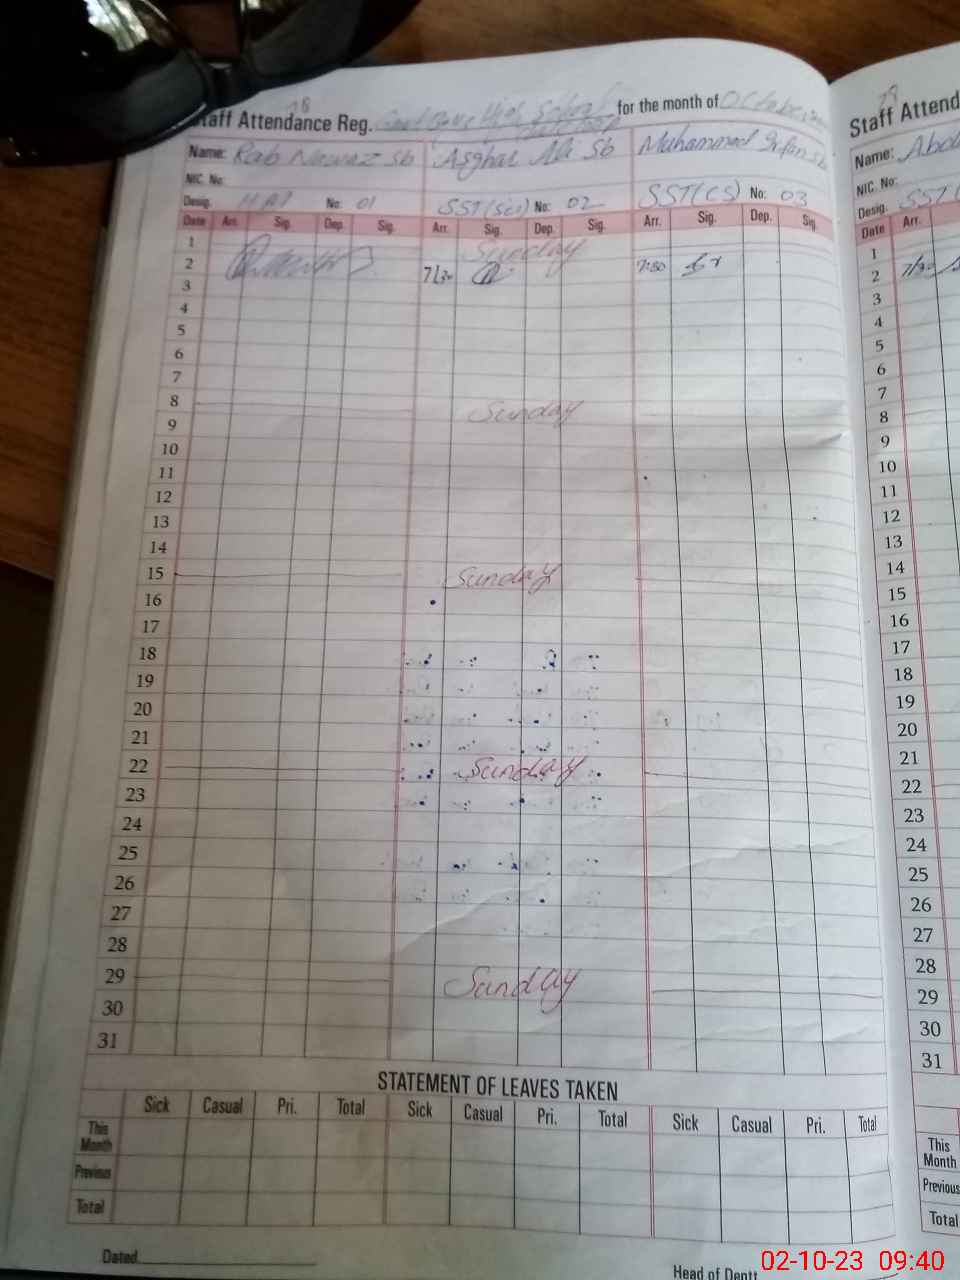 78
Staff Attendance Reg. High School for the month of October
Name: Rab Nawaz Sb Asghar Ali Sb Muhammad Irfan Sb
NIC. No:
Desig. No: 01 SST(Sci) No: 02 SST(CS) No: 03
Date Arr. Sig. Dep. Sig. Arr. Sig. Dep. Sig. Arr. Sig. Dep. Sig.
1 Sunday
2 7/30 7:30
3
4
5
6
7
8 Sunday
9
10
11
12
13
14
15 Sunday
16
17
18
19
20
21
22 Sunday
23
24
25
26
27
28
29 Sunday
30
31
STATEMENT OF LEAVES TAKEN
Sick Casual Pri. Total Sick Casual Pri. Total Sick Casual Pri. Total
This Month
Previous
Total
Dated
Head of Deptt
79
Staff Attend
Name:
NIC. No:
Desig. SST
Date Arr.
1
2 7/30
3
4
5
6
7
8
9
10
11
12
13
14
15
16
17
18
19
20
21
22
23
24
25
26
27
28
29
30
31
This Month
Previous
Total
02-10-23 09:40